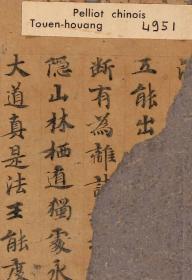 Pelliot chinois
Touen-houang 4951
五能出
斷有為離
隱山林栖道獨處永
大道真是法王能度